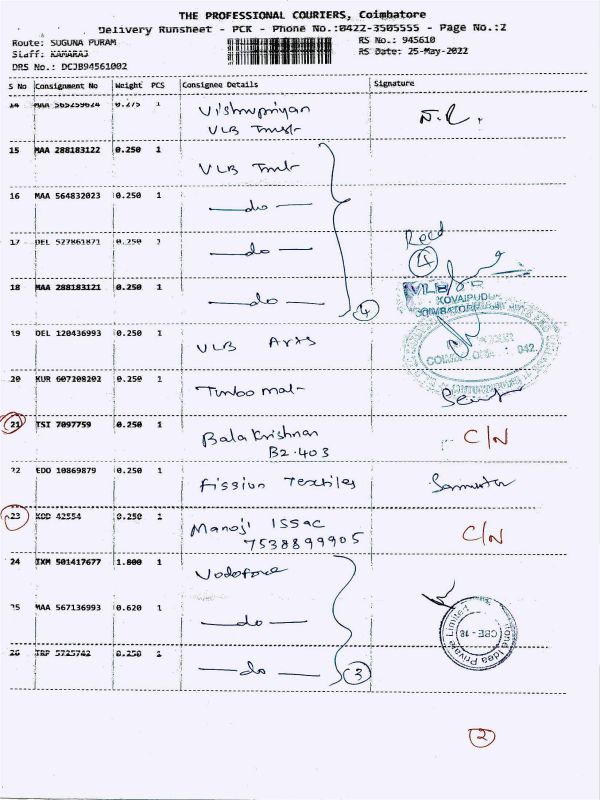 THE PROFESSIONAL COURIERS, Coimbatore
Delivery Runsheet - PCK - Phone No.:0422-3505555 - Page No.:2
Route: SUGUNA PURAM
RS No.: 945610
Staff: KAMARAJ
RS Date: 25-May-2022
DRS No.: DCJB94561002
S No Consignment No Weight PCS Consignee Details Signature
14 MAA 565259624 0.275 1 Vishnupriyan
VLB Trust
15 MAA 288183122 0.250 1 VLB Trust
16 MAA 564832023 0.250 1 —do—
17 DEL 527861871 0.250 1 —do—
Recd
4
18 MAA 288183121 0.250 1 —do—
4
VLB
KOVAIPUDUR
COIMBATORE
19 DEL 120436993 0.250 1 VLB Arts
20 KUR 607208202 0.250 1
21 TSI 7097759 0.250 1 Bala Krishnan C/N
B2.403
22 EDO 10869879 0.250 1 Fission Textiles
23 KDD 42554 0.250 1 Manoj Issac C/N
7538899905
24 IXM 501417677 1.800 1 Vodofone
25 MAA 567136993 0.620 1 —do—
CBE - 18
Idea Private Limited
26 TRP 5725742 0.250 1 —do—
3
2